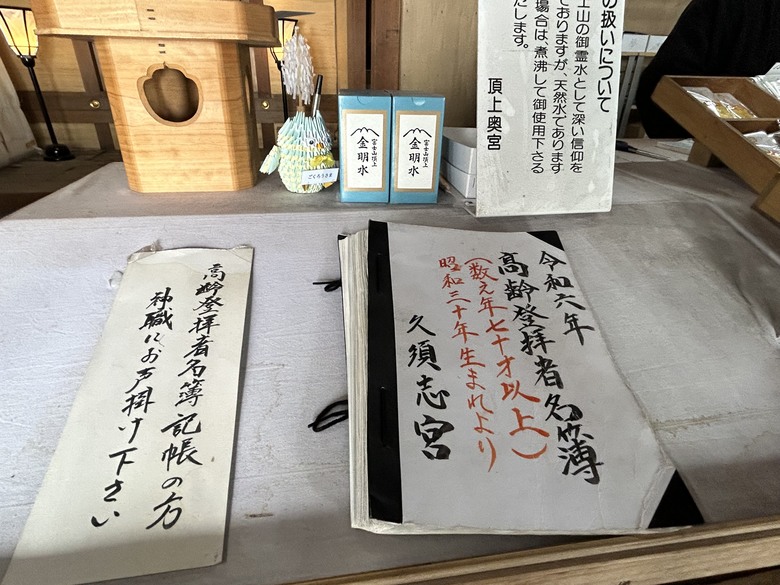 の扱いについて
士山の御霊水として深い信仰を
ておりますが、天然水であります
場合は、煮沸して御使用下さる
たします。
頂上奥宮
富士山頂上
金明水
富士山頂上
金明水
ごくろうさま
令和六年
高齢登拝者名簿
(数え年七十才以上)
昭和三十年生まれより
久須志宮
高齢登拝者名簿記帳の方
神職にお声掛け下さい